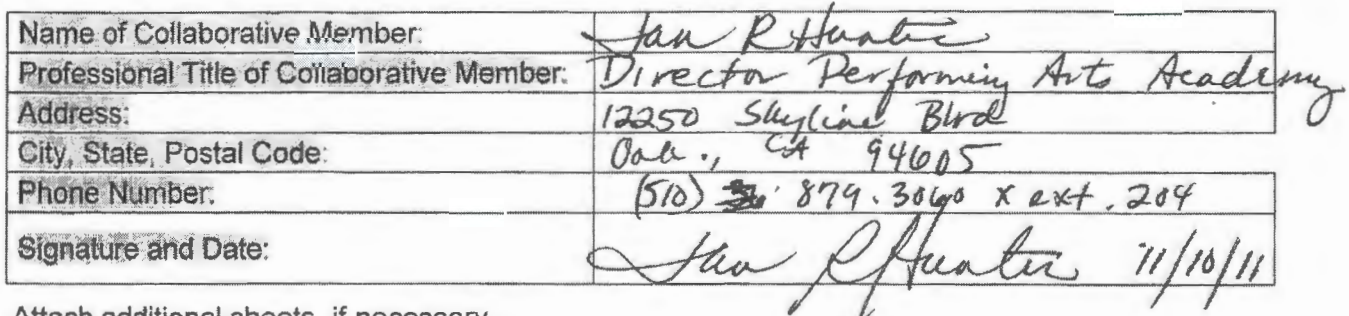 Name of Collaborative Member: Jan R Hunter
Professional Title of Collaborative Member: Director Performing Arts Academy
Address: 12250 Skyline Blvd
City, State, Postal Code: Oak., CA 94605
Phone Number: (510) 879.3060 x ext. 204
Signature and Date: Jan R Hunter 11/10/11
Attach additional sheets, if necessary